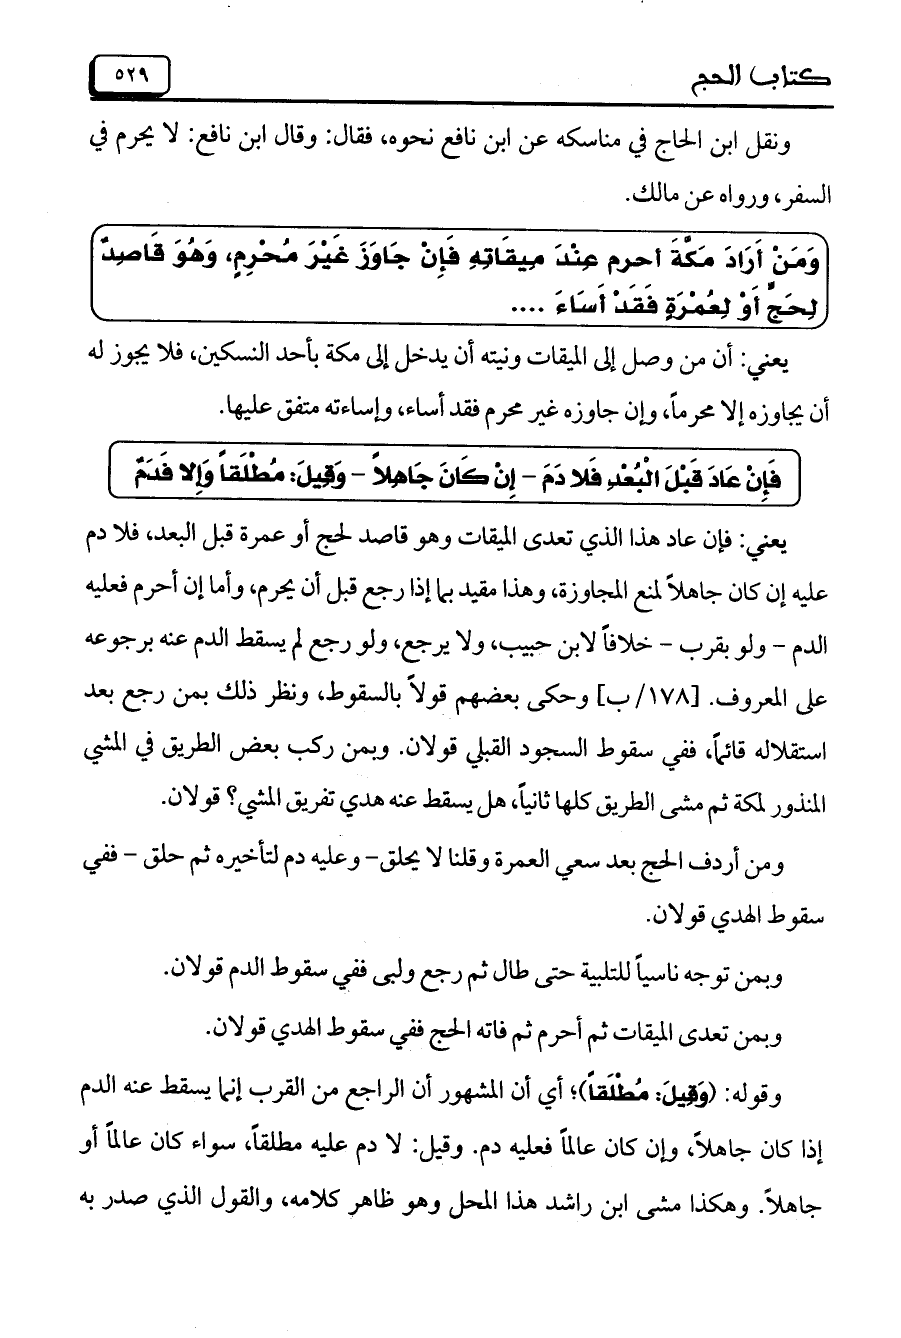 كتاب الحج
٥٢٩
ونقل ابن الحاج في مناسكه عن ابن نافع نحوه، فقال: وقال ابن نافع: لا يحرم في
السفر، ورواه عن مالك.
وَمَنْ أَرَادَ مَكَّةَ أحرم عِنْدَ مِيقَاتِهِ فَإِنْ جَاوَزَ غَيْرَ مُحْرِمٍ، وَهُوَ قَاصِدٌ
لِحَجٍّ أَوْ لِعُمْرَةٍ فَقَدْ أَسَاءَ ....
يعني: أن من وصل إلى الميقات ونيته أن يدخل إلى مكة بأحد النسكين، فلا يجوز له
أن يجاوزه إلا محرماً، وإن جاوزه غير محرم فقد أساء، وإساءته متفق عليها.
فَإِنْ عَادَ قَبْلَ الْبُعْدِ فَلا دَمَ – إِنْ كَانَ جَاهِلاً – وَقِيلَ: مُطْلَقاً وَإِلا فَدَمٌ
يعني: فإن عاد هذا الذي تعدى الميقات وهو قاصد لحج أو عمرة قبل البعد، فلا دم
عليه إن كان جاهلاً لمنع المجاوزة، وهذا مقيد بما إذا رجع قبل أن يحرم، وأما إن أحرم فعليه
الدم – ولو بقرب – خلافاً لابن حبيب، ولا يرجع، ولو رجع لم يسقط الدم عنه برجوعه
على المعروف. [١٧٨/ ب] وحكى بعضهم قولاً بالسقوط، ونظر ذلك بمن رجع بعد
استقلاله قائماً، ففي سقوط السجود القبلي قولان. وبمن ركب بعض الطريق في المشي
المنذور لمكة ثم مشى الطريق كلها ثانياً، هل يسقط عنه هدي تفريق المشي؟ قولان.
ومن أردف الحج بعد سعي العمرة وقلنا لا يحلق– وعليه دم لتأخيره ثم حلق – ففي
سقوط الهدي قولان.
وبمن توجه ناسياً للتلبية حتى طال ثم رجع ولبى ففي سقوط الدم قولان.
وبمن تعدى الميقات ثم أحرم ثم فاته الحج ففي سقوط الهدي قولان.
وقوله: (وَقِيلَ: مُطْلَقاً)؛ أي أن المشهور أن الراجع من القرب إنما يسقط عنه الدم
إذا كان جاهلاً، وإن كان عالماً فعليه دم. وقيل: لا دم عليه مطلقاً، سواء كان عالماً أو
جاهلاً. وهكذا مشى ابن راشد هذا المحل وهو ظاهر كلامه، والقول الذي صدر به